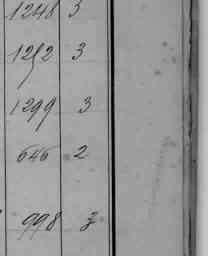 1248 3
1252 3
1299 3
646 2
998 3